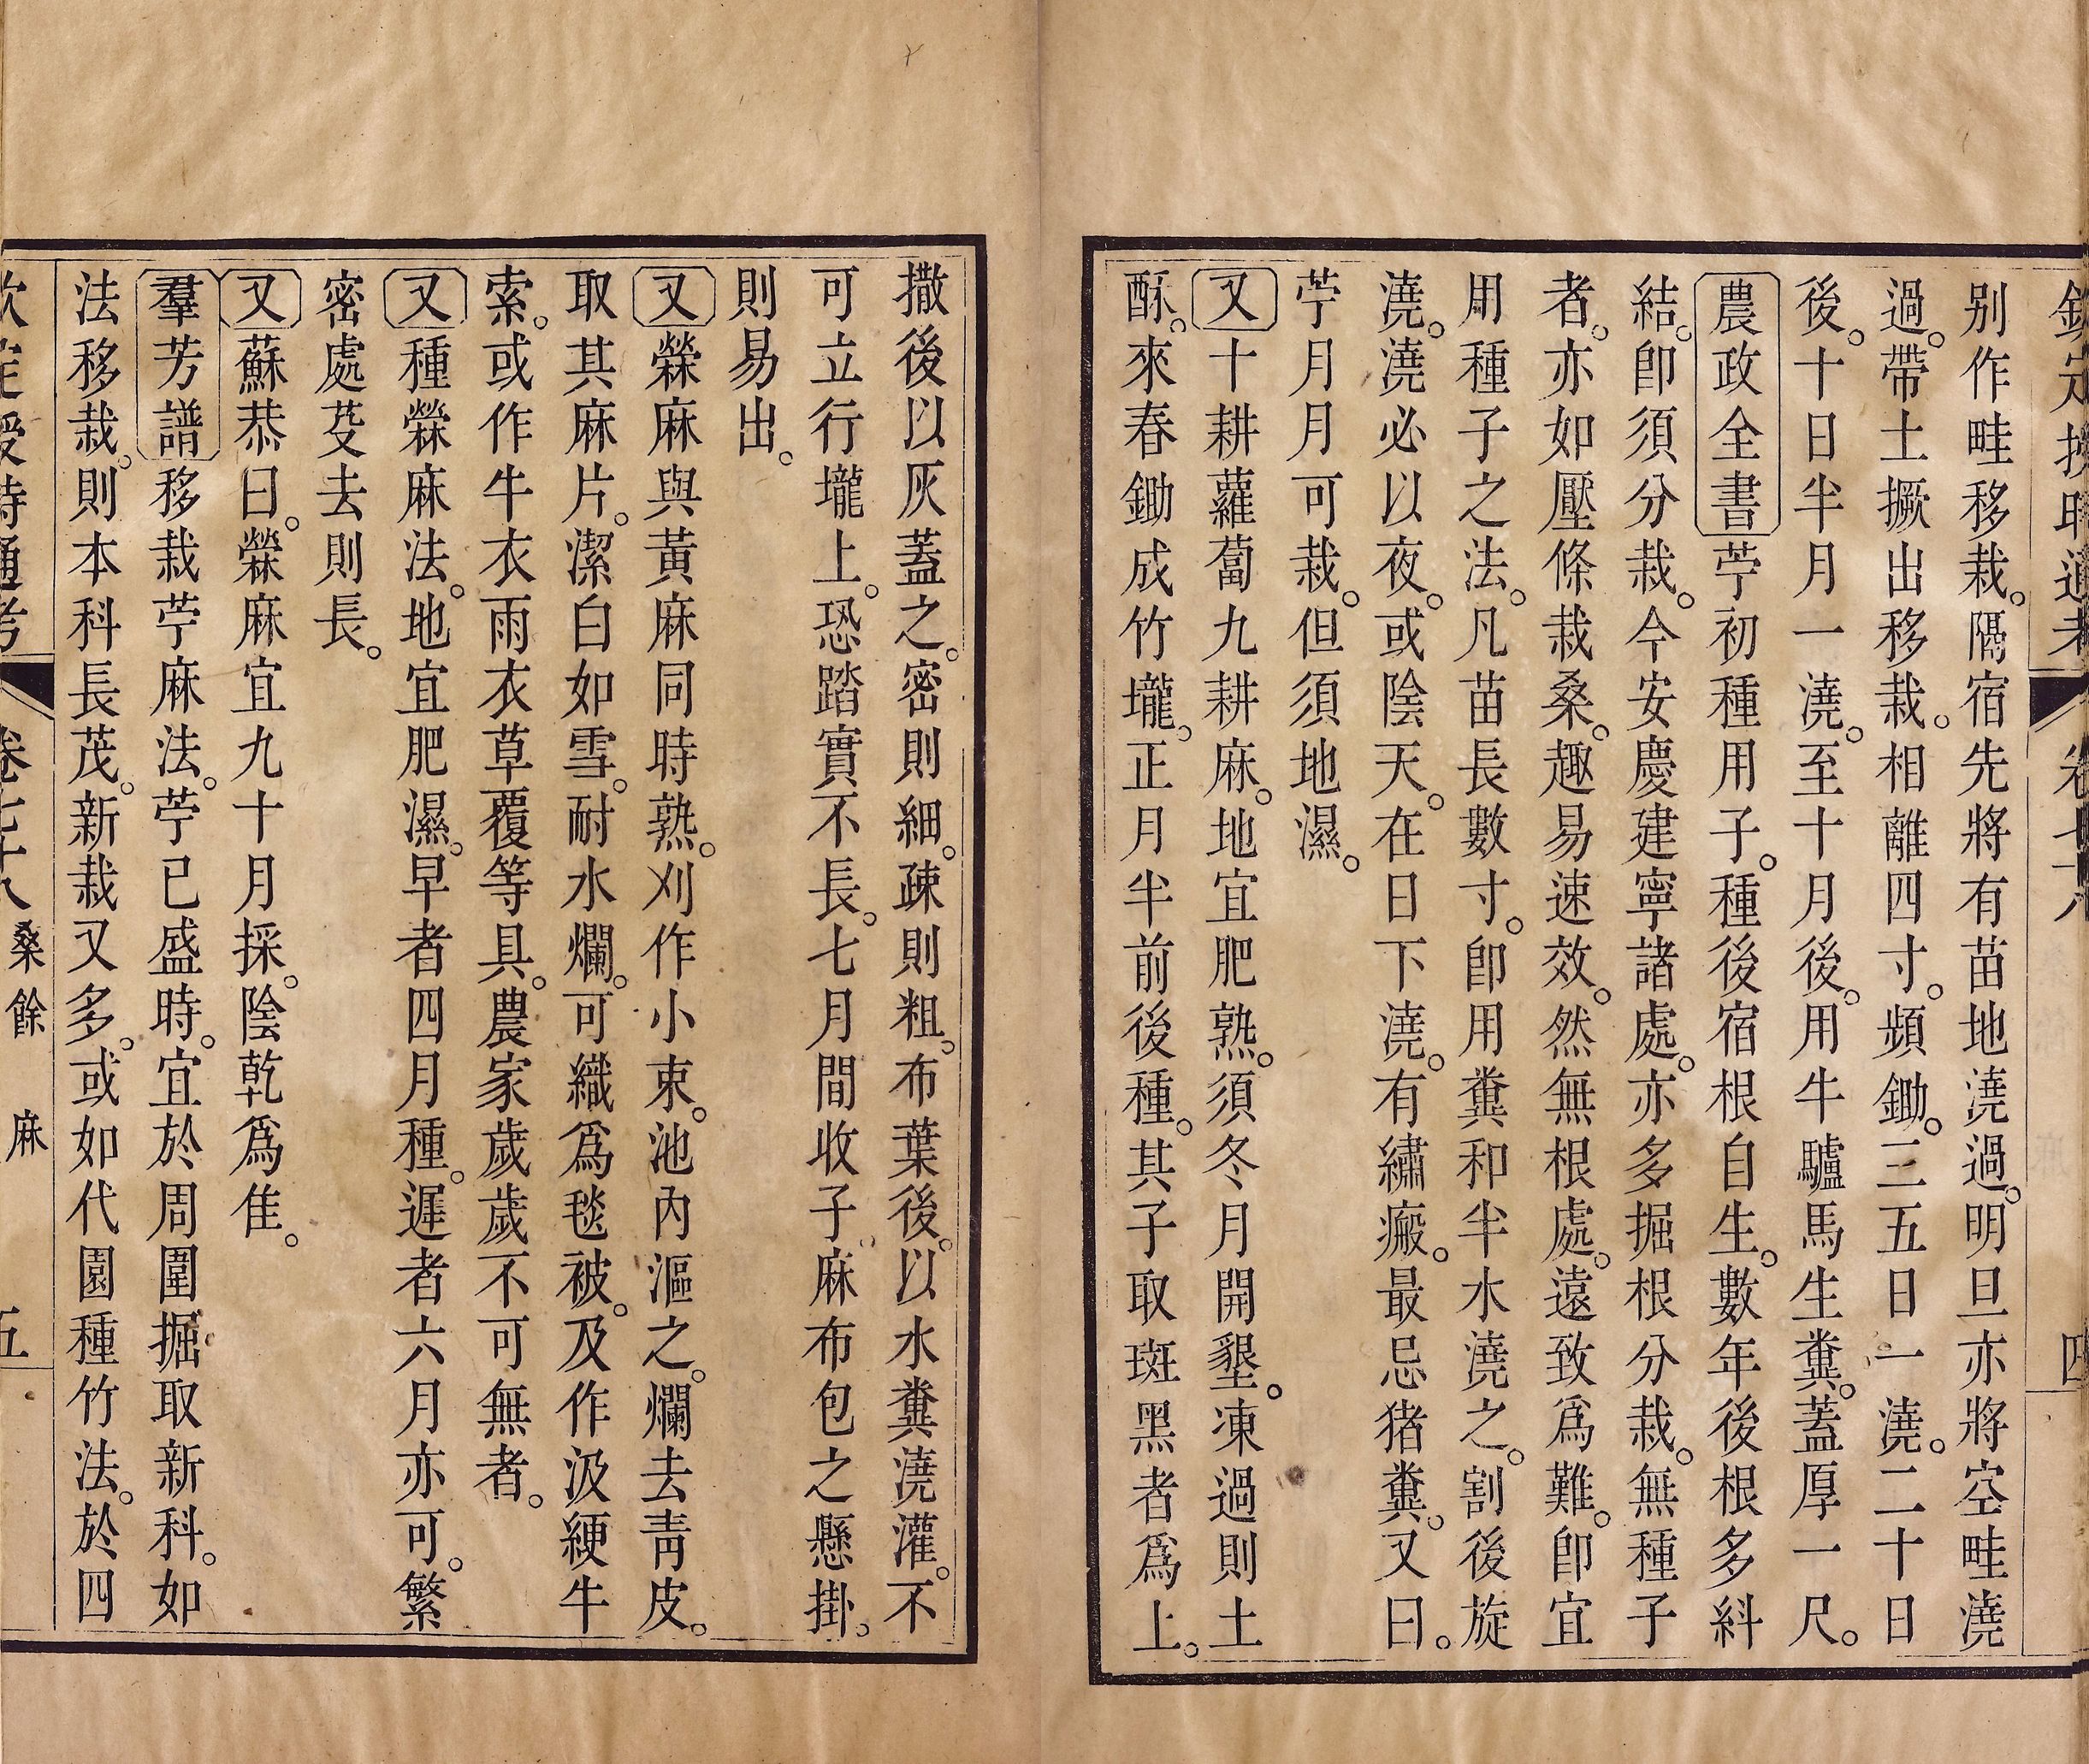 欽定授時通考 卷七十八 四
别作畦移栽。隔宿先將有苗地澆過。明旦亦將空畦澆
過。帶土撅出移栽。相離四寸。頻鋤。三五日一澆。二十日
後。十日半月一澆。至十月後。用牛驢馬生糞。蓋厚一尺。
農政全書苧初種用子。種後宿根自生。數年後根多糾
結。卽須分栽。今安慶建寧諸處。亦多掘根分栽。無種子
者。亦如壓條栽桑。趣易速效。然無根處。遠致爲難。卽宜
用種子之法。凡苗長數寸。卽用糞和半水澆之。割後旋
澆。澆必以夜。或陰天。在日下澆。有繡瘢。最忌猪糞。又曰。
苧月月可栽。但須地濕。
又十耕蘿蔔九耕麻。地宜肥熟。須冬月開墾。凍過則土
酥。來春鋤成竹壠。正月半前後種。其子取斑黑者爲上。
撒後以灰蓋之。密則細。疎則粗。布葉後。以水糞澆灌。不
可立行壠上。恐踏實不長。七月間收子麻布包之懸掛。
則易出。
又檾麻與黃麻同時熟。刈作小束。池內漚之。爛去青皮。
取其麻片。潔白如雪。耐水爛。可織爲毯被。及作汲綆牛
索。或作牛衣雨衣草覆等具。農家歲歲不可無者。
又種檾麻法。地宜肥濕。早者四月種。遲者六月亦可。繁
密處芟去則長。
又蘇恭曰。檾麻宜九十月採。陰乾爲佳。
羣芳譜移栽苧麻法。苧已盛時。宜於周圍掘取新科。如
法移栽。則本科長茂。新栽又多。或如代園種竹法。於四
欽定授時通考 卷七十八 桑餘 麻 五